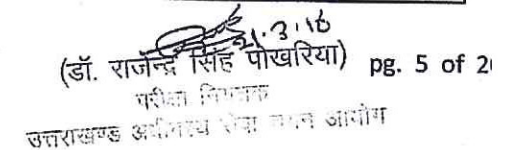 21.3.16
(डॉ. राजेन्द्र सिंह पोखरिया) pg. 5 of 2
परीक्षा नियंत्रक
उत्तराखण्ड अधीनस्थ सेवा चयन आयोग